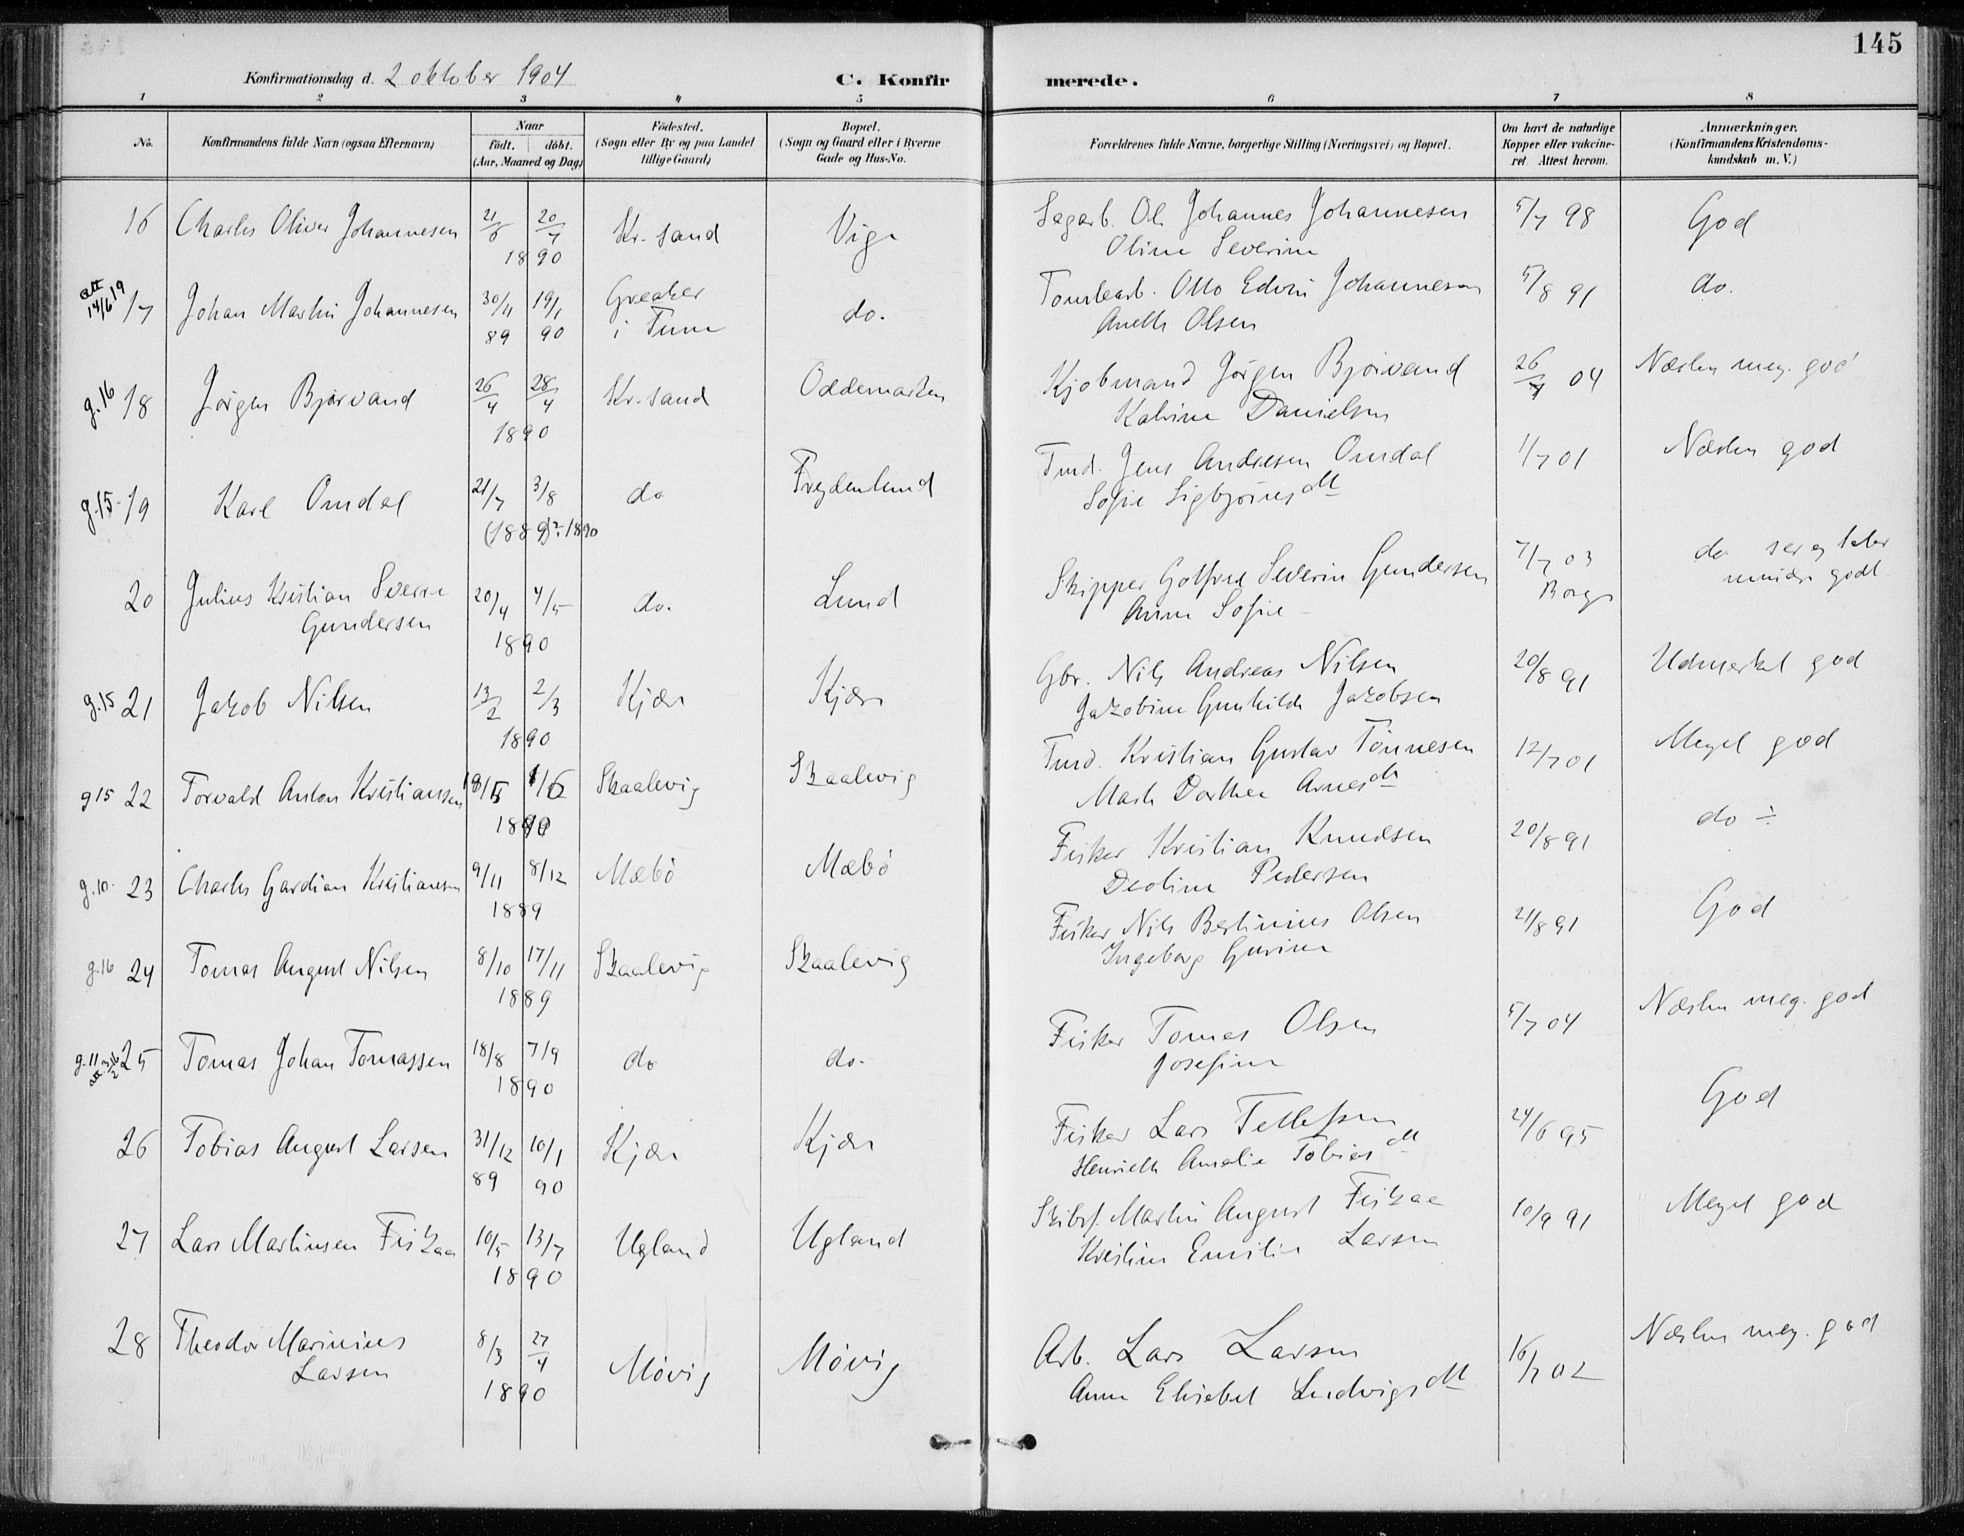 145
Konfirmationsdag d. 2 oktober 1904
C. Konfirmerede.
1 2 3 4 5 6 7 8
No.
Konfirmandens fulde Navn (ogsaa Efternavn)
Naar
født. døbt.
(Aar, Maaned og Dag)
Fødested.
(Sogn eller By og paa Landet
tillige Gaard)
Bopæl.
(Sogn og Gaard eller i Byerne
Gade og Hus-No.
Forældrenes fulde Navne, borgerlige Stilling (Næringsvei) og Bopæl.
Om havt de naturlige
Kopper eller vakcine-
ret Attest herom.
Anmærkninger.
(Konfirmandens Kristendoms-
kundskab m. V.)
16 Charles Oliver Johannesen 21/6 20/7 Kr. sand Vige Sagarb. Ole Johannes Johannesen 5/7 98 God
1890 Oline Severine
att 14/6 19 17 Johan Martin Johannesen 30/11 19/1 Greaker do. Tomtearb. Otto Edvin Johannesen 5/8 91 do.
89 90 i Tune Anette Olsen
g.16 18 Jørgen Bjørvand 26/4 28/4 Kr. sand Oddemarken Kjøbmand Jørgen Bjørvand 26/7 04 Næsten meg. god
1890 Katrine Danielsen
g.15 19 Karl Omdal 21/7 3/8 do Frydenlund Tmd. Jens Andresen Omdal 1/7 01 Næsten god
(1889)?: 1890 Sofie Sigbjørnsdtt
20 Julius Kristian Sverre 20/4 4/5 do. Lund Skipper Gotfred Severin Gundersen 7/7 03 do ser og taler
Gundersen 1890 Anne Sofie Borge mindre godt.
g.15 21 Jakob Nilsen 13/2 2/3 Kjære Kjære Gbr. Nils Andreas Nilsen 20/8 91 Udmerket god
1890 Jakobine Gunhilde Jakobsen
g15 22 Torvald Anton Kristiansen Skaalevig Skaalevig Tmd. Kristian Gustav Tönnesen 12/7 01 Meget god
1890 Dorthea Arnesdtt
g.10. 23 Charles Gardian Kristiansen 9/11 8/12 Mæbø Mæbø Fisker Kristian Knudsen 20/8 91 do ÷
1889 Deoline Pedersen
g.16 24 Tomas August Nilsen 8/10 17/11 Skaalevig Skaalevig Fisker Nils Bertinius Olsen 21/8 91 God
1889 Ingeborg Gurine
g.11 att 25 Tomas Johan Tomassen 18/8 7/9 do do. Fisker Tomas Olsen 5/7 04 Næsten meg. god
1890 Josefine
26 Tobias August Larsen 31/12 10/1 Kjære Kjære Fisker Lars Tellefsen 24/6 95 God
89 90 Henriette Amalie Tobiasdtt
27 Lars Martinsen Fiskaa 10/5 13/7 Ugland Ugland Skibsf. Martin August Fiskaa 10/9 91 Meget god
1890 Kristine Emilie Larsen
28 Theodor Marinius 8/3 27/4 Møvig Møvig Arb. Lars Larsen 16/7 02 Næsten meg. god
Larsen 1890 Anne Elisabet Ludvigsdtt